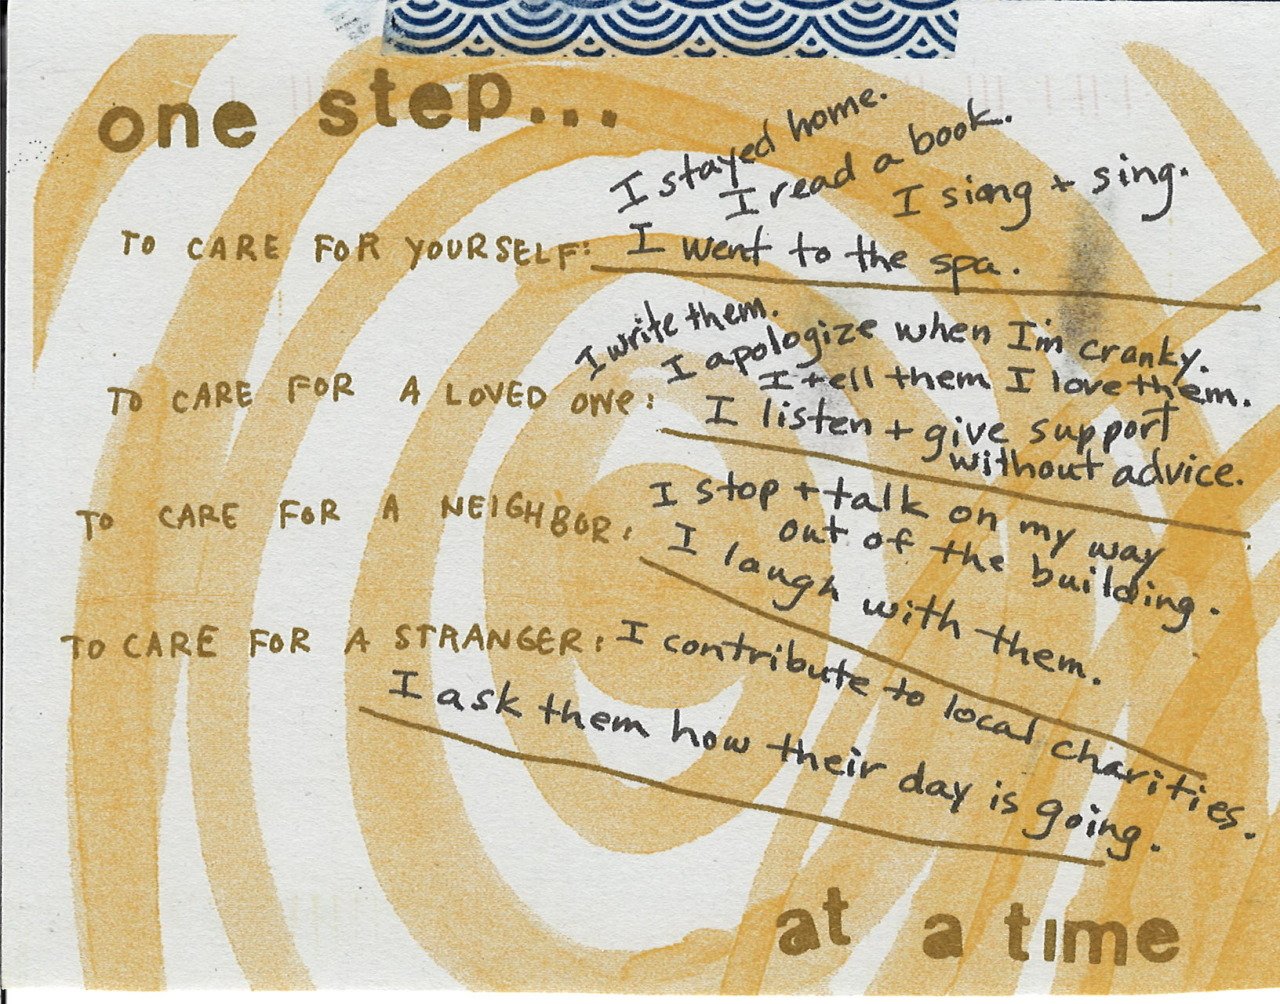 one step...
I stayed home.
I read a book.
I siong + sing.
TO CARE FOR YOURSELF: I went to the spa.
I write them.
I apologize when I'm cranky.
I tell them I love them.
TO CARE FOR A LOVED ONE: I listen + give support
without advice.
TO CARE FOR A NEIGHBOR: I stop + talk on my way
out of the building.
I laugh with them.
TO CARE FOR A STRANGER: I contribute to local charities.
I ask them how their day is going.
at a time